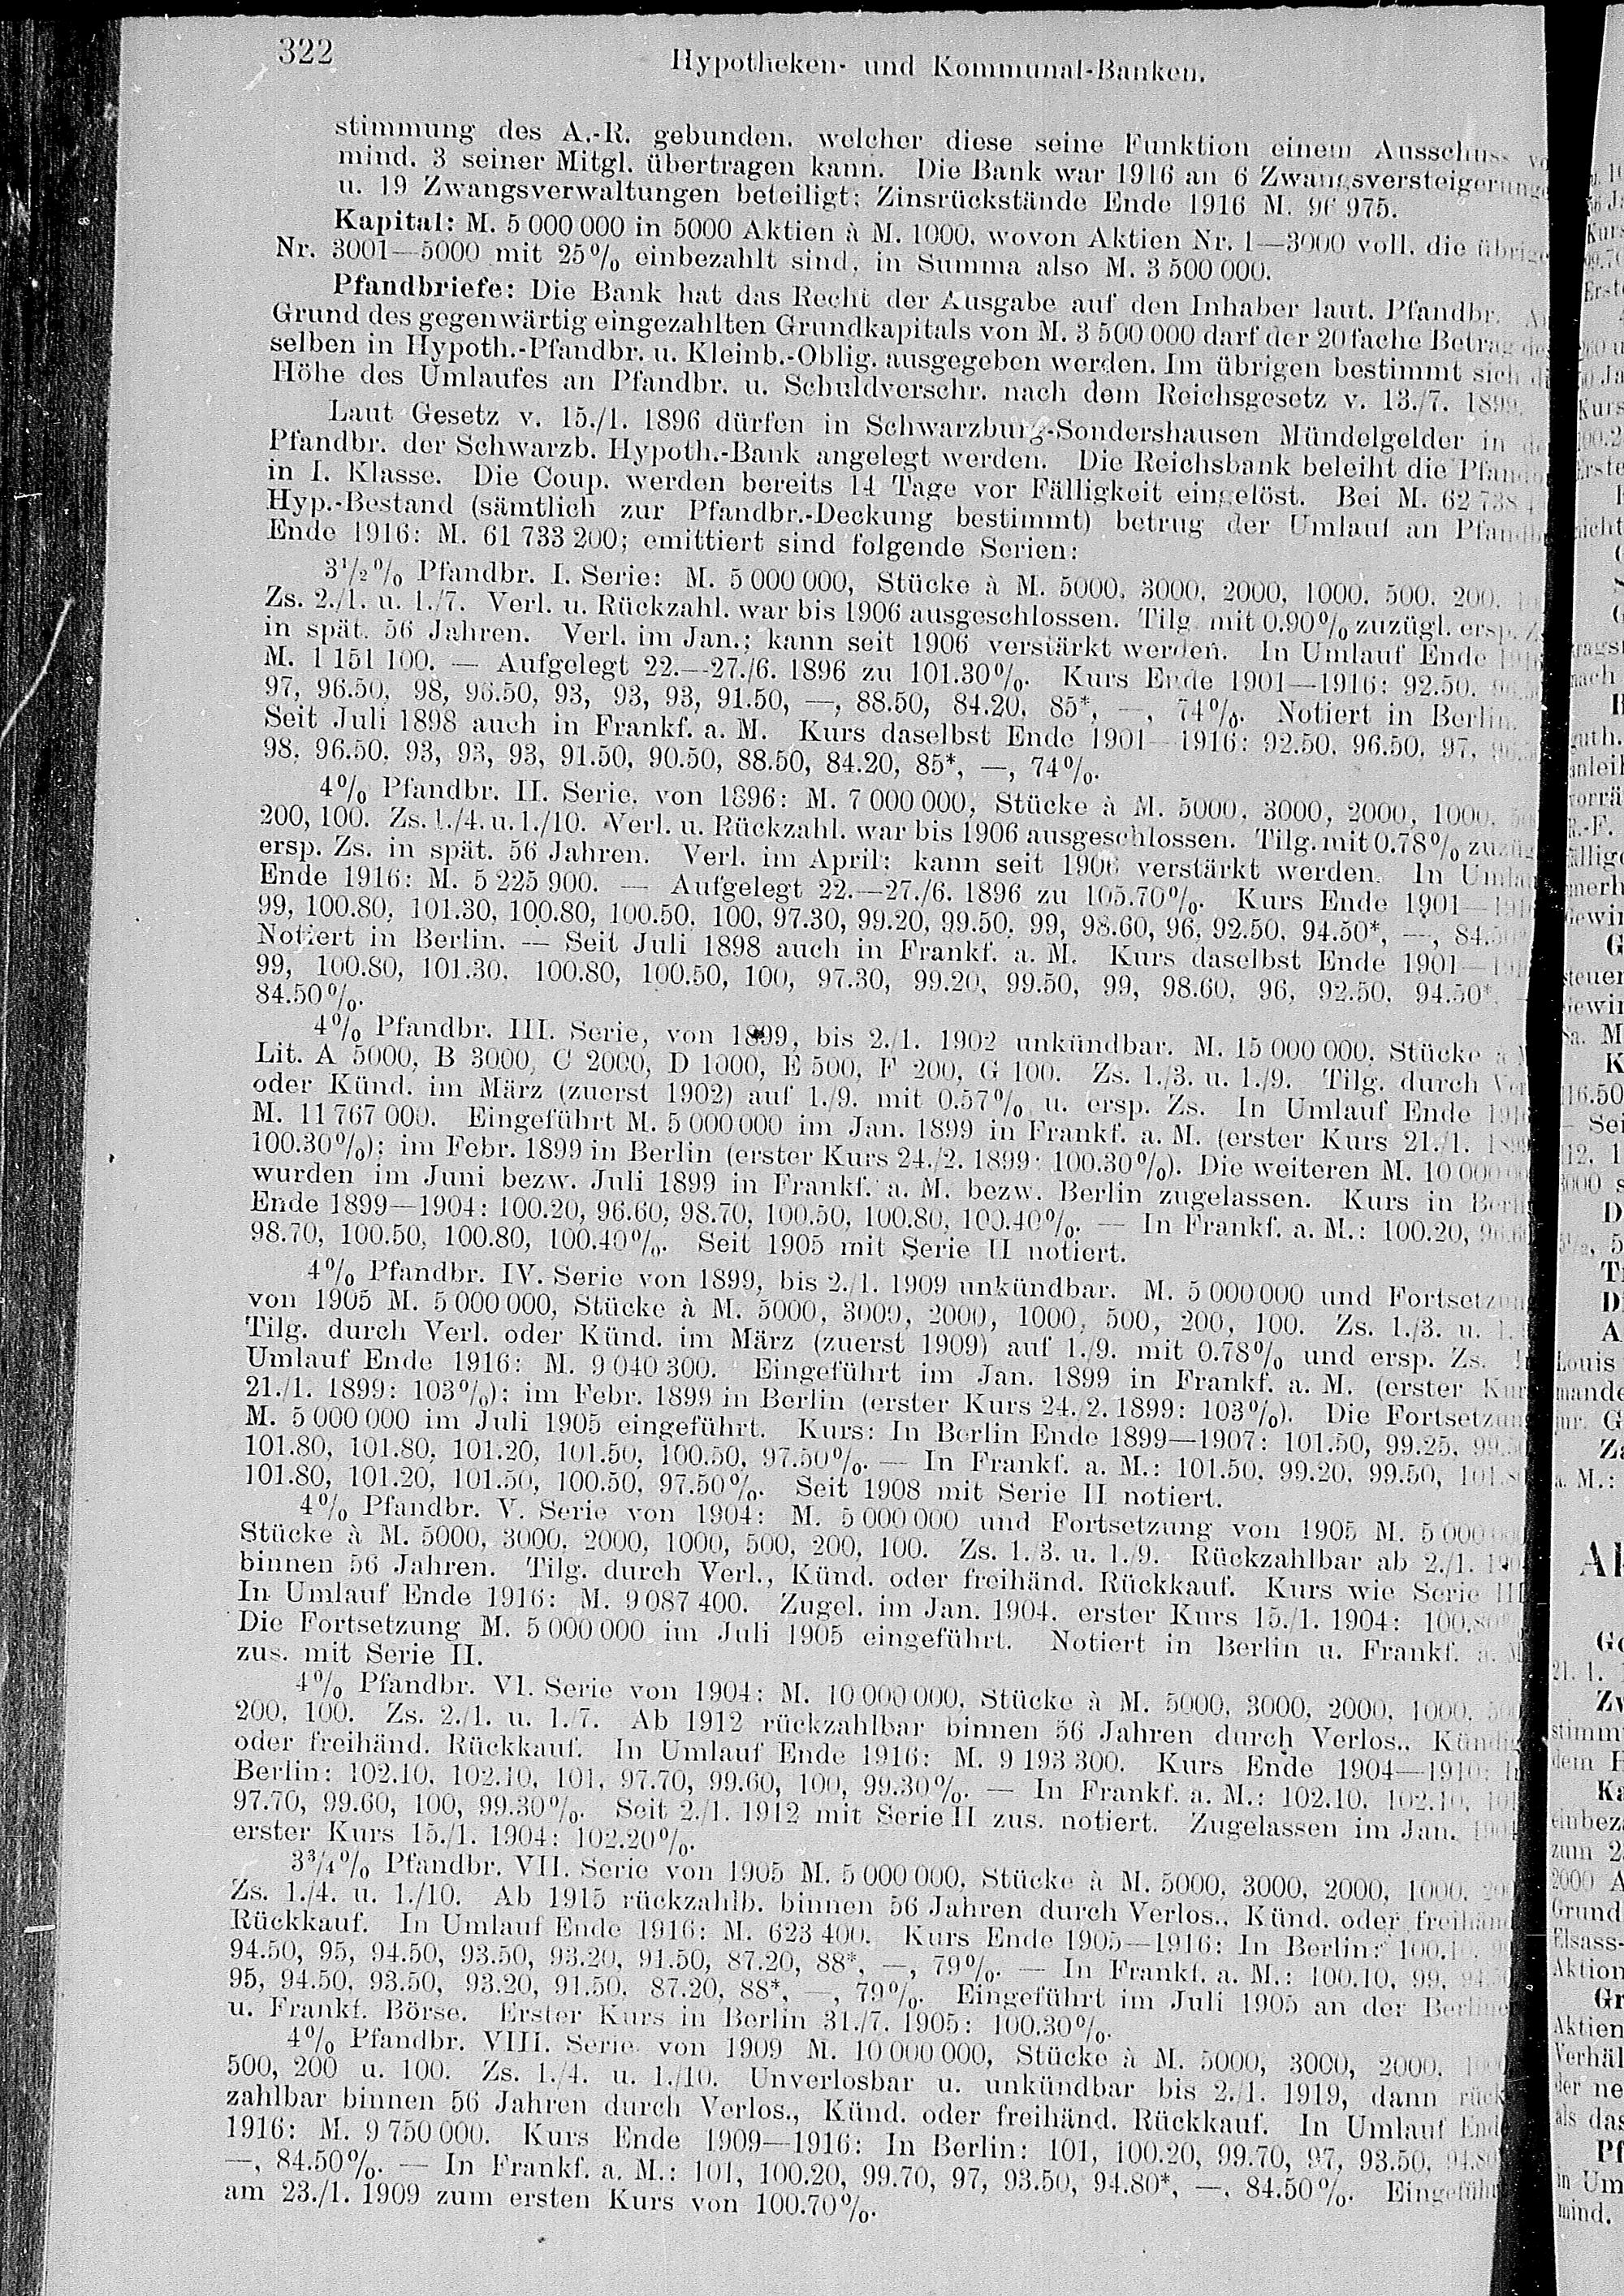 322
Hypotheken- und Kommunal-Banken.
stimmung des A.-R. gebunden, welcher diese seine Funktion einem Ausschuss
mind. 3 seiner Mitgl. übertragen kann. Die Bank war 1916 an 6 Zwangsversteigerunge
u. 19 Zwangsverwaltungen beteiligt; Zinsrückstände Ende 1916 M. 96 975.
Kapital: M. 5 000 000 in 5000 Aktien à M. 1000, wovon Aktien Nr. 1—3000 voll, die übrige
Nr. 3001—5000 mit 25% einbezahlt sind, in Summa also M. 3 500 000.
Pfandbriefe: Die Bank hat das Recht der Ausgabe auf den Inhaber laut. Pfandbr.
Grund des gegenwärtig eingezahlten Grundkapitals von M. 3 500 000 darf der 20fache Betrag
selben in Hypoth.-Pfandbr. u. Kleinb.-Oblig. ausgegeben werden. Im übrigen bestimmt sich
Höhe des Umlaufes an Pfandbr. u. Schuldverschr. nach dem Reichsgesetz v. 13./7. 1899.
Laut Gesetz v. 15./1. 1896 dürfen in Schwarzburg-Sondershausen Mündelgelder in
Pfandbr. der Schwarzb. Hypoth.-Bank angelegt werden. Die Reichsbank beleiht die
in I. Klasse. Die Coup. werden bereits 14 Tage vor Fälligkeit eingelöst. Bei M. 62 738
Hyp.-Bestand (sämtlich zur Pfandbr.-Deckung bestimmt) betrug der Umlauf an
Ende 1916: M. 61 733 200; emittiert sind folgende Serien:
3½% Pfandbr. I. Serie: M. 5 000 000, Stücke à M. 5000, 3000, 2000, 1000, 500, 200,
Zs. 2./1. u. 1./7. Verl. u. Rückzahl. war bis 1906 ausgeschlossen. Tilg. mit 0.90% zuzügl. ersp.
in spät. 56 Jahren. Verl. im Jan.; kann seit 1906 verstärkt werden. In Umlauf Ende 1916
M. 1 151 100. — Aufgelegt 22.—27./6. 1896 zu 101.30%. Kurs Ende 1901—1916: 92.50,
97, 96.50, 98, 96.50, 93, 93, 93, 91.50, —, 88.50, 84.20, 85*, —, 74%. Notiert in Berlin.
Seit Juli 1898 auch in Frankf. a. M. Kurs daselbst Ende 1901—1916: 92.50, 96.50, 97,
98, 96.50, 93, 93, 93, 91.50, 90.50, 88.50, 84.20, 85*, —, 74%.
4% Pfandbr. II. Serie, von 1896: M. 7 000 000, Stücke à M. 5000, 3000, 2000, 1000,
200, 100. Zs. 1./4. u. 1./10. Verl. u. Rückzahl. war bis 1906 ausgeschlossen. Tilg. mit 0.78% zuzüg
ersp. Zs. in spät. 56 Jahren. Verl. im April; kann seit 1906 verstärkt werden. In Umlau
Ende 1916: M. 5 225 900. — Aufgelegt 22.—27./6. 1896 zu 105.70%. Kurs Ende 1901—
99, 100.80, 101.30, 100.80, 100.50, 100, 97.30, 99.20, 99.50, 99, 98.60, 96, 92.50, 94.50*, —, 84.50
Notiert in Berlin. — Seit Juli 1898 auch in Frankf. a. M. Kurs daselbst Ende 1901—
99, 100.80, 101.30, 100.80, 100.50, 100, 97.30, 99.20, 99.50, 99, 98.60, 96, 92.50, 94.50*,
84.50%.
4% Pfandbr. III. Serie, von 1899, bis 2./1. 1902 unkündbar. M. 15 000 000, Stücke
Lit. A 5000, B 3000, C 2000, D 1000, E 500, F 200, G 100. Zs. 1./3. u. 1./9. Tilg. durch
oder Künd. im März (zuerst 1902) auf 1./9. mit 0.57% u. ersp. Zs. In Umlauf Ende 1916
M. 11 767 000. Eingeführt M. 5 000 000 im Jan. 1899 in Frankf. a. M. (erster Kurs 21./1. 1899
100.30%); im Febr. 1899 in Berlin (erster Kurs 24./2. 1899: 100.30%). Die weiteren M. 10 000 000
wurden im Juni bezw. Juli 1899 in Frankf. a. M. bezw. Berlin zugelassen. Kurs in Berlin
Ende 1899—1904: 100.20, 96.60, 98.70, 100.50, 100.80, 100.40%. — In Frankf. a. M.: 100.20, 96.60
98.70, 100.50, 100.80, 100.40%. Seit 1905 mit Serie II notiert.
4% Pfandbr. IV. Serie von 1899, bis 2./1. 1909 unkündbar. M. 5 000 000 und Fortsetzung
von 1905 M. 5 000 000, Stücke à M. 5000, 3000, 2000, 1000, 500, 200, 100. Zs. 1./3. u.
Tilg. durch Verl. oder Künd. im März (zuerst 1909) auf 1./9. mit 0.78% und ersp. Zs.
Umlauf Ende 1916: M. 9 040 300. Eingeführt im Jan. 1899 in Frankf. a. M. (erster Kurs
21./1. 1899: 103%); im Febr. 1899 in Berlin (erster Kurs 24./2. 1899: 103%). Die Fortsetzung
M. 5 000 000 im Juli 1905 eingeführt. Kurs: In Berlin Ende 1899—1907: 101.50, 99.25,
101.80, 101.80, 101.20, 101.50, 100.50, 97.50%. — In Frankf. a. M.: 101.50, 99.20, 99.50, 101.80
101.80, 101.20, 101.50, 100.50, 97.50%. Seit 1908 mit Serie II notiert.
4% Pfandbr. V. Serie von 1904: M. 5 000 000 und Fortsetzung von 1905 M. 5 000
Stücke à M. 5000, 3000, 2000, 1000, 500, 200, 100. Zs. 1./3. u. 1./9. Rückzahlbar ab 2./1.
binnen 56 Jahren. Tilg. durch Verl., Künd. oder freihänd. Rückkauf. Kurs wie Serie III
In Umlauf Ende 1916: M. 9 087 400. Zugel. im Jan. 1904, erster Kurs 15./1. 1904: 100.80%
Die Fortsetzung M. 5 000 000 im Juli 1905 eingeführt. Notiert in Berlin u. Frankf. a. M
zus. mit Serie II.
4% Pfandbr. VI. Serie von 1904: M. 10 000 000, Stücke à M. 5000, 3000, 2000, 1000, 500
200, 100. Zs. 2./1. u. 1./7. Ab 1912 rückzahlbar binnen 56 Jahren durch Verlos., Kündig
oder freihänd. Rückkauf. In Umlauf Ende 1916: M. 9 193 300. Kurs Ende 1904—1910: In
Berlin: 102.10, 102.10, 101, 97.70, 99.60, 100, 99.30%. — In Frankf. a. M.: 102.10, 102.10, 101
97.70, 99.60, 100, 99.30%. Seit 2./1. 1912 mit Serie II zus. notiert. Zugelassen im Jan. 1904
erster Kurs 15./1. 1904: 102.20%.
3¾% Pfandbr. VII. Serie von 1905 M. 5 000 000, Stücke à M. 5000, 3000, 2000, 1000,
Zs. 1./4. u. 1./10. Ab 1915 rückzahlb. binnen 56 Jahren durch Verlos., Künd. oder freihänd
Rückkauf. In Umlauf Ende 1916: M. 623 400. Kurs Ende 1905—1916: In Berlin: 100.10,
94.50, 95, 94.50, 93.50, 93.20, 91.50, 87.20, 88*, —, 79%. — In Frankf. a. M.: 100.10, 99, 94.50
95, 94.50, 93.50, 93.20, 91.50, 87.20, 88*, —, 79%. Eingeführt im Juli 1905 an der Berliner
u. Frankf. Börse. Erster Kurs in Berlin 31./7. 1905: 100.30%.
4% Pfandbr. VIII. Serie von 1909 M. 10 000 000, Stücke à M. 5000, 3000, 2000, 1000
500, 200 u. 100. Zs. 1./4. u. 1./10. Unverlosbar u. unkündbar bis 2./1. 1919, dann rück
zahlbar binnen 56 Jahren durch Verlos., Künd. oder freihänd. Rückkauf. In Umlauf Ende
1916: M. 9 750 000. Kurs Ende 1909—1916: In Berlin: 101, 100.20, 99.70, 97, 93.50, 94.80
—, 84.50%. — In Frankf. a. M.: 101, 100.20, 99.70, 97, 93.50, 94.80*, —, 84.50%. Eingeführ
am 23./1. 1909 zum ersten Kurs von 100.70%.